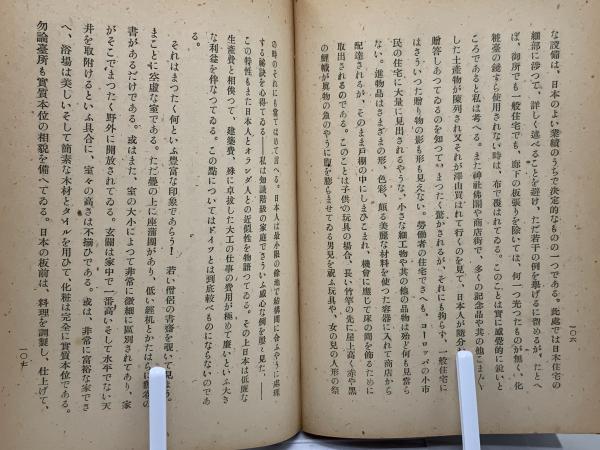 一〇六
な設備は、日本のよい業績のうちで決定的なものの一つである。此處では日本住宅の
細部に渉つて、詳しく述べることを避け、ただ若干の例を擧げるに留めるが、たとへ
ば、御所でも一般住宅でも、廊下の板張りを除いては、何一つ光つたものが無く、化
粧臺の鏡すら使用されない時は、布で覆はれてゐる。このことは實に感覺的に鋭いと
ころであると私は考へる。また神社佛閣や商店街で、多くの記念品や其の他こまごま
した土產物が陳列され又それが澤山買はれて行くのを見て、日本人が隨分
贈答しあつてゐるのを知つて、まつたく驚かされるが、それにも拘らず、一般住宅に
はさういつた贈り物の影も形も見えない。勞働者の住宅でさへも、ヨーロッパの小市
民の住宅に大量に見出されるやうな、小さな細工物や其の他の品物は殆ど何も見當ら
ない。進物品はさまざまの形、色彩、頗る美麗な材料を使つた容器に入れて商店から
配達されるが、そのまま戸棚の中にしまひこまれ、機會に應じて床の間を飾るために
取出されるのである。このことは子供の玩具の場合、長い竹竿の先に屋上高く赤や黑
の鯉幟が眞物の魚のやうに腹を膨らませてゐる男兒を祝ふ玩具や、女の兒の人形の祭
の時のそれにも當てはめて言へる。日本人は最小限の餘地で結構間に合ふやうに處理
する祕訣を心得てゐる——私は知識階級の家庭でさういふ感心な例を屢〻見た。——
この特性もまた日本人とオランダ人との近似性を物語つてゐる。その上日本は低廉な
生產費と相俟つて、建築費、殊に卓拔した大工の仕事の費用が極めて廉いといふ大き
な利益を伴なつてゐる。この點についてはドイツとは到底較べものにならないのであ
る。
それはまつたく何といふ豐富な印象であらう！　若い僧侶の書齋を覗いて見よう。
まことに空虛な室である。ただ疊の上に座蒲團があり、低い經机とかたはらに
書があるだけである。或はまた、室の大小によつて非常に微細に區別されてあり、家
がそこでまつたく野外に開放されてゐる。玄關は家中で一番高いそして水平でない天
井を取附けるといふ具合に、室々の高さは不揃ひである。或は、非常に富裕な家でさ
へ、浴場は美しいそして簡素な木材とタイルを用ひて、化粧は完全に實質本位である。
勿論臺所も實質本位の相貌を備へてゐる。日本の板前は、料理を調製し、仕上げて、
一〇七